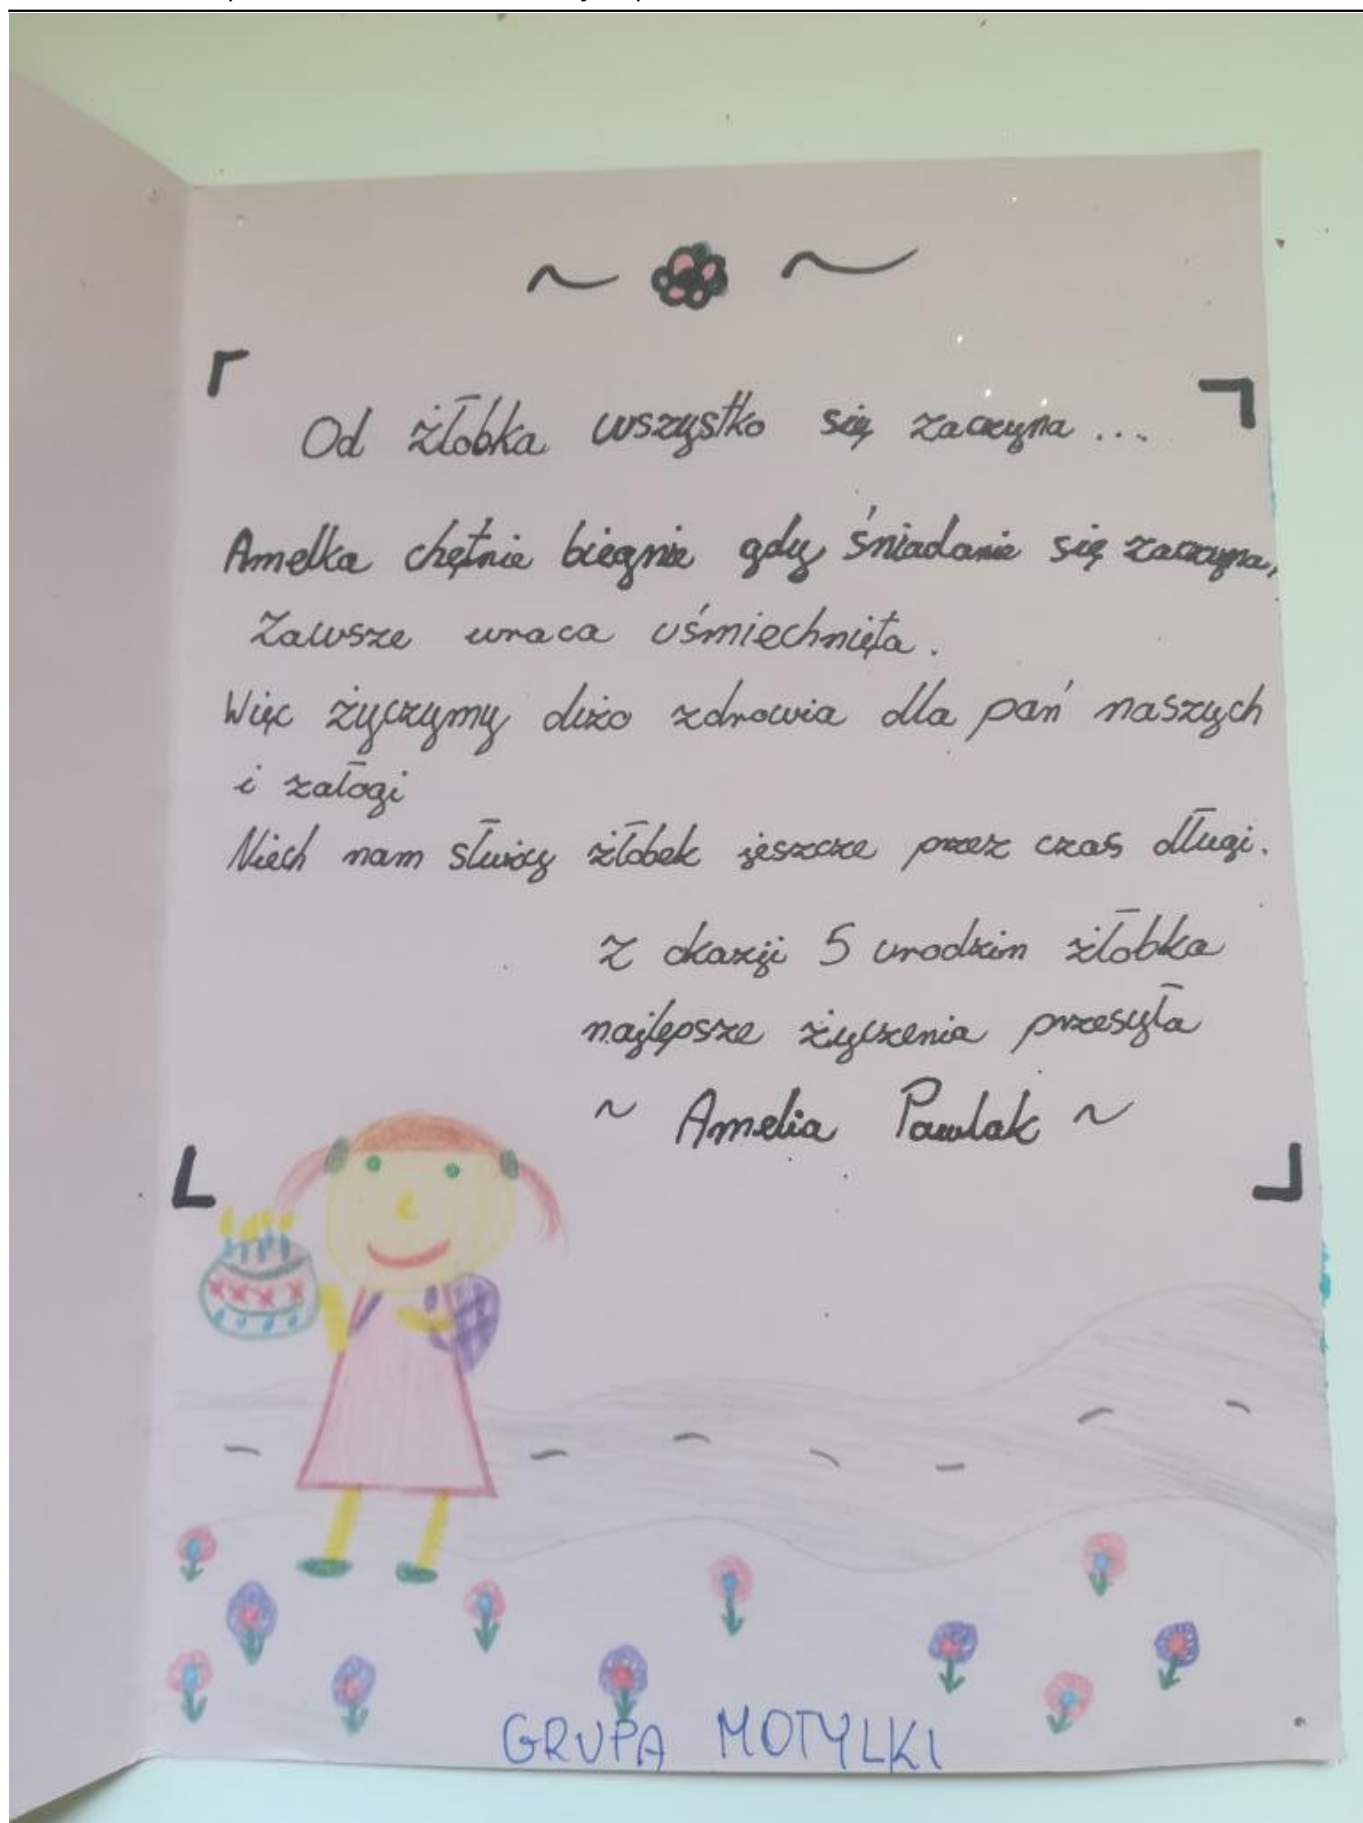 Od żłobka wszystko się zaczyna...
Amelka chętnie biegnie gdy śniadanie się zaczyna,
Zawsze wraca uśmiechnięta.
Więc życzymy dużo zdrowia dla pań naszych
i załogi
Niech nam służy żłobek jeszcze przez czas długi.
Z okazji 5 urodzin żłobka
najlepsze życzenia przesyła
~ Amelia Pawlak ~
GRUPA MOTYLKI